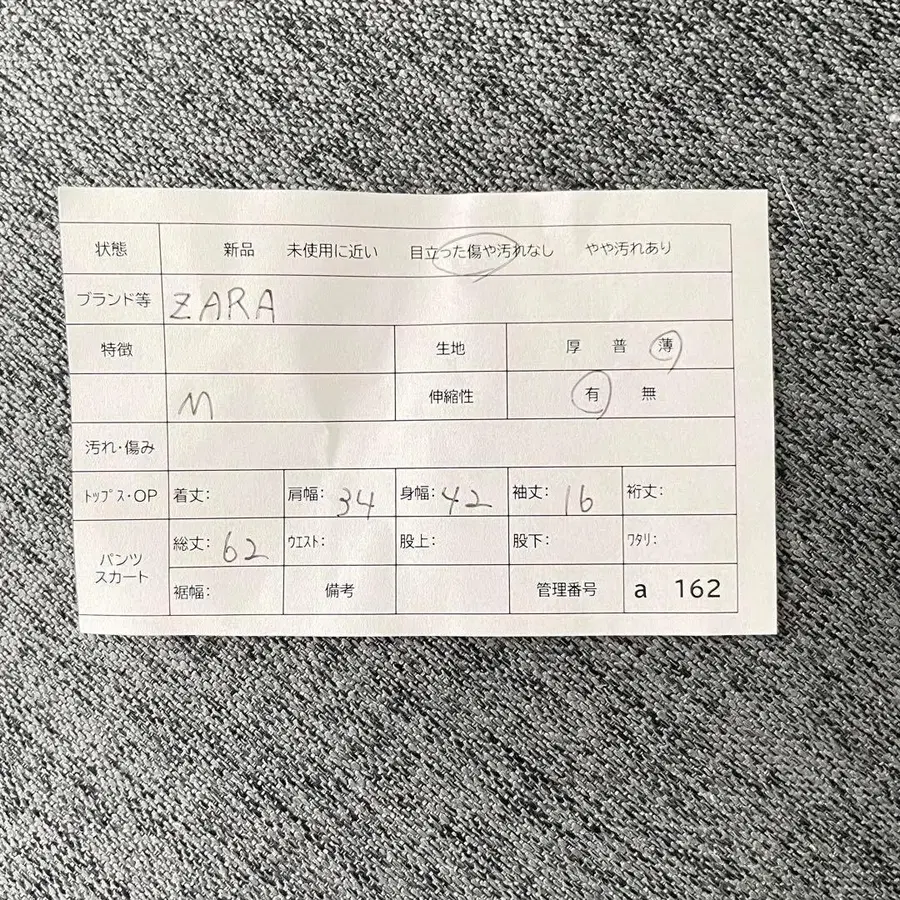 状態 新品 未使用に近い 目立った傷や汚れなし やや汚れあり
ブランド等 ZARA
特徴 生地 厚 普 薄
M 伸縮性 有 無
汚れ・傷み
ﾄｯﾌﾟｽ・OP 着丈: 肩幅: 34 身幅: 42 袖丈: 16 裄丈:
パンツ スカート 総丈: 62 ｳｴｽﾄ: 股上: 股下: ﾜﾀﾘ:
裾幅: 備考 管理番号 a 162